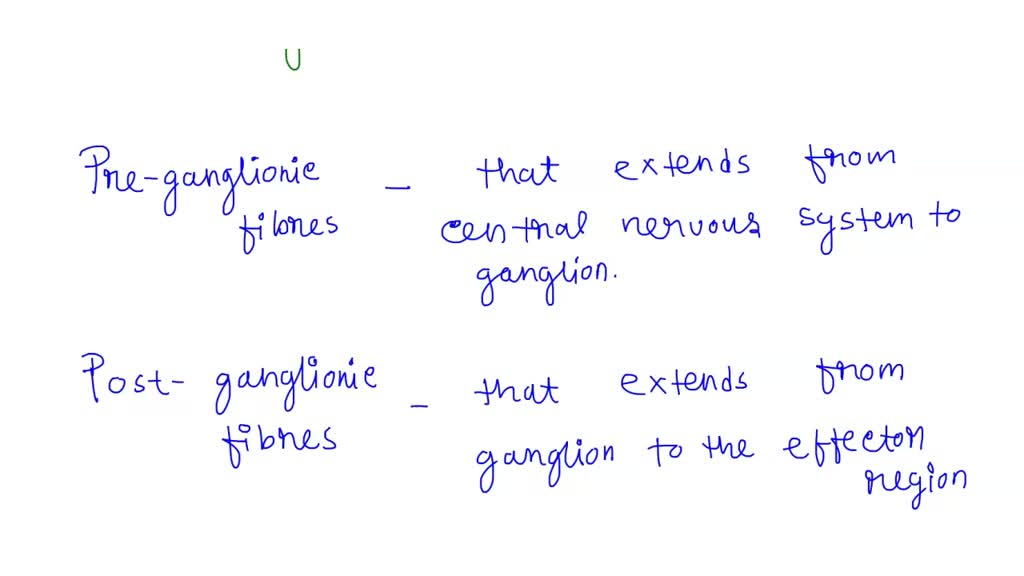 U
Pre-ganglionic - that extends from
fibres central nervous system to
ganglion.
Post- ganglionic - that extends from
fibres ganglion to the effector
region